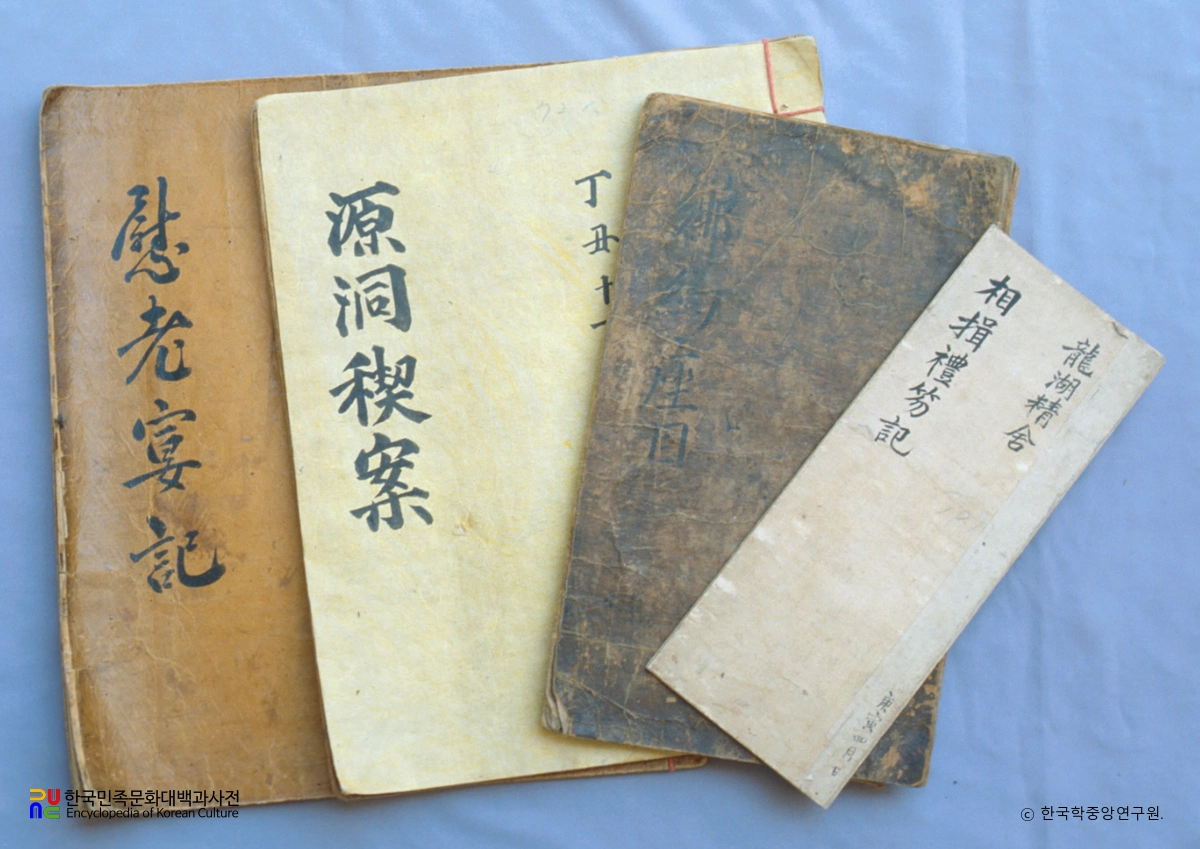 慰老宴記
源洞稧案
丁丑十一
座目
相揖禮笏記
龍湖精舍
庚寅四月日
한국민족문화대백과사전
Encyclopedia of Korean Culture
ⓒ 한국학중앙연구원.